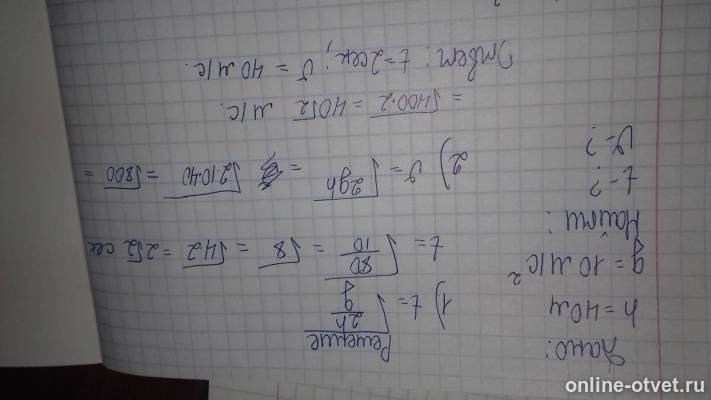 Дано:
h = 40 м
g = 10 м/с²
Найти:
t - ?
V - ?
Решение
1) t = √2h/g
t = √80/10 = √8 = √4·2 = 2√2 сек
2) V = √2gh = √2·10·40 = √800 =
= √400·2 = 40√2 м/с.
Ответ: t = 2сек; V = 40 м/с.
online-otvet.ru